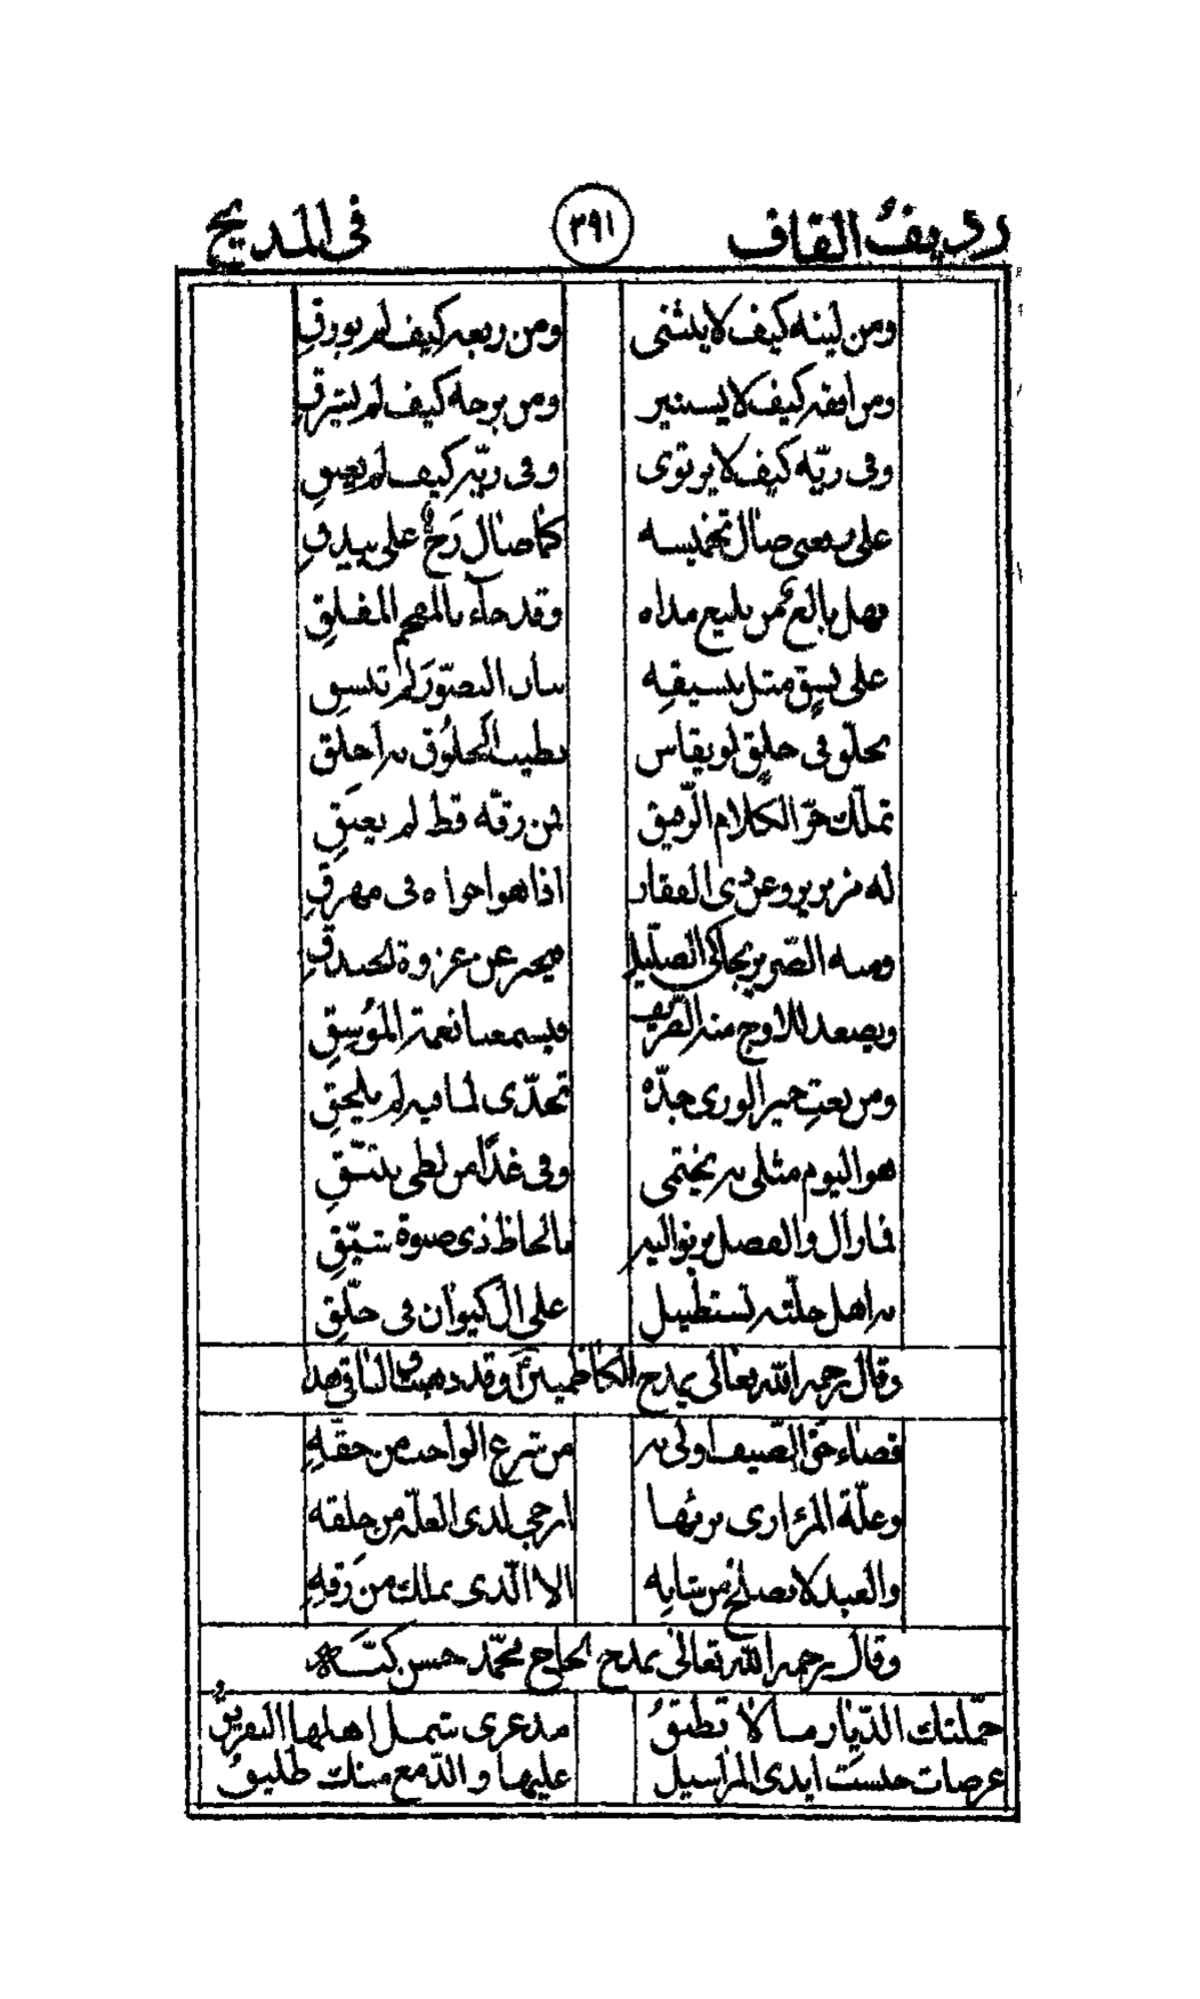 رديف القاف ٣٩١ في المديح
ومن لينه كيف لا ينثني ومن ريعه كيف لم يورق
ومن افقه كيف لا يستنير ومن برجه كيف لم يشرق
وفى ريّه كيف لا يرتوى وفى ربّه كيف لم يعبق
على صال تخميسه كما صال رخ على بيدق
فهل بالغ من بليغ مداه وقد جاء بالمفحم المفلق
على نسق مثل تنسيقه بنات التصوّر لم تنسق
تخلّق في خلق لو يقاس بطيب الخلوق به اخلق
تملّك حرّ الكلام الرّقيق فمن رقّه قط لم يعتق
له مزبر عن ذى الفقار اذا هوا فى مهرق
ومنه الصّرير يحاكى الصليل فيخبر عن غزوة الخندق
ويصعد للاوج منه الصّريف فيسمعنا نغمة المؤسق
ومن نعت خير الورى جدّه تحدّى لما فيه لم يلحق
هو اليوم مثلى به يحتمى وفى غدا من لظى يتّقى
فما زال والفضل يرنو اليه بالحاظ ذى صبوة شيّق
به اهل حلّته تستطيل على آل كيوان فى جلّق
وقال رحمه الله تعالى يمدح الكاظمين وقد
قضاء حقّ الضّيف اولى به من شرع الواجب من حقّه
وعلّة المرء ارى برئها ارجى لدى العلّة من خلقه
والعبد لا يصلح من شانه الا الّذى يملك من رقّه
وقال رحمه الله تعالى يمدح الحاج محمّد حسن كبّه
حمّلتك الدّيار ما لا تطيق مذ عرى شمل اهلها التفريق
عرصات حبست ايدى المراسيل عليها والدّمع منك طليق